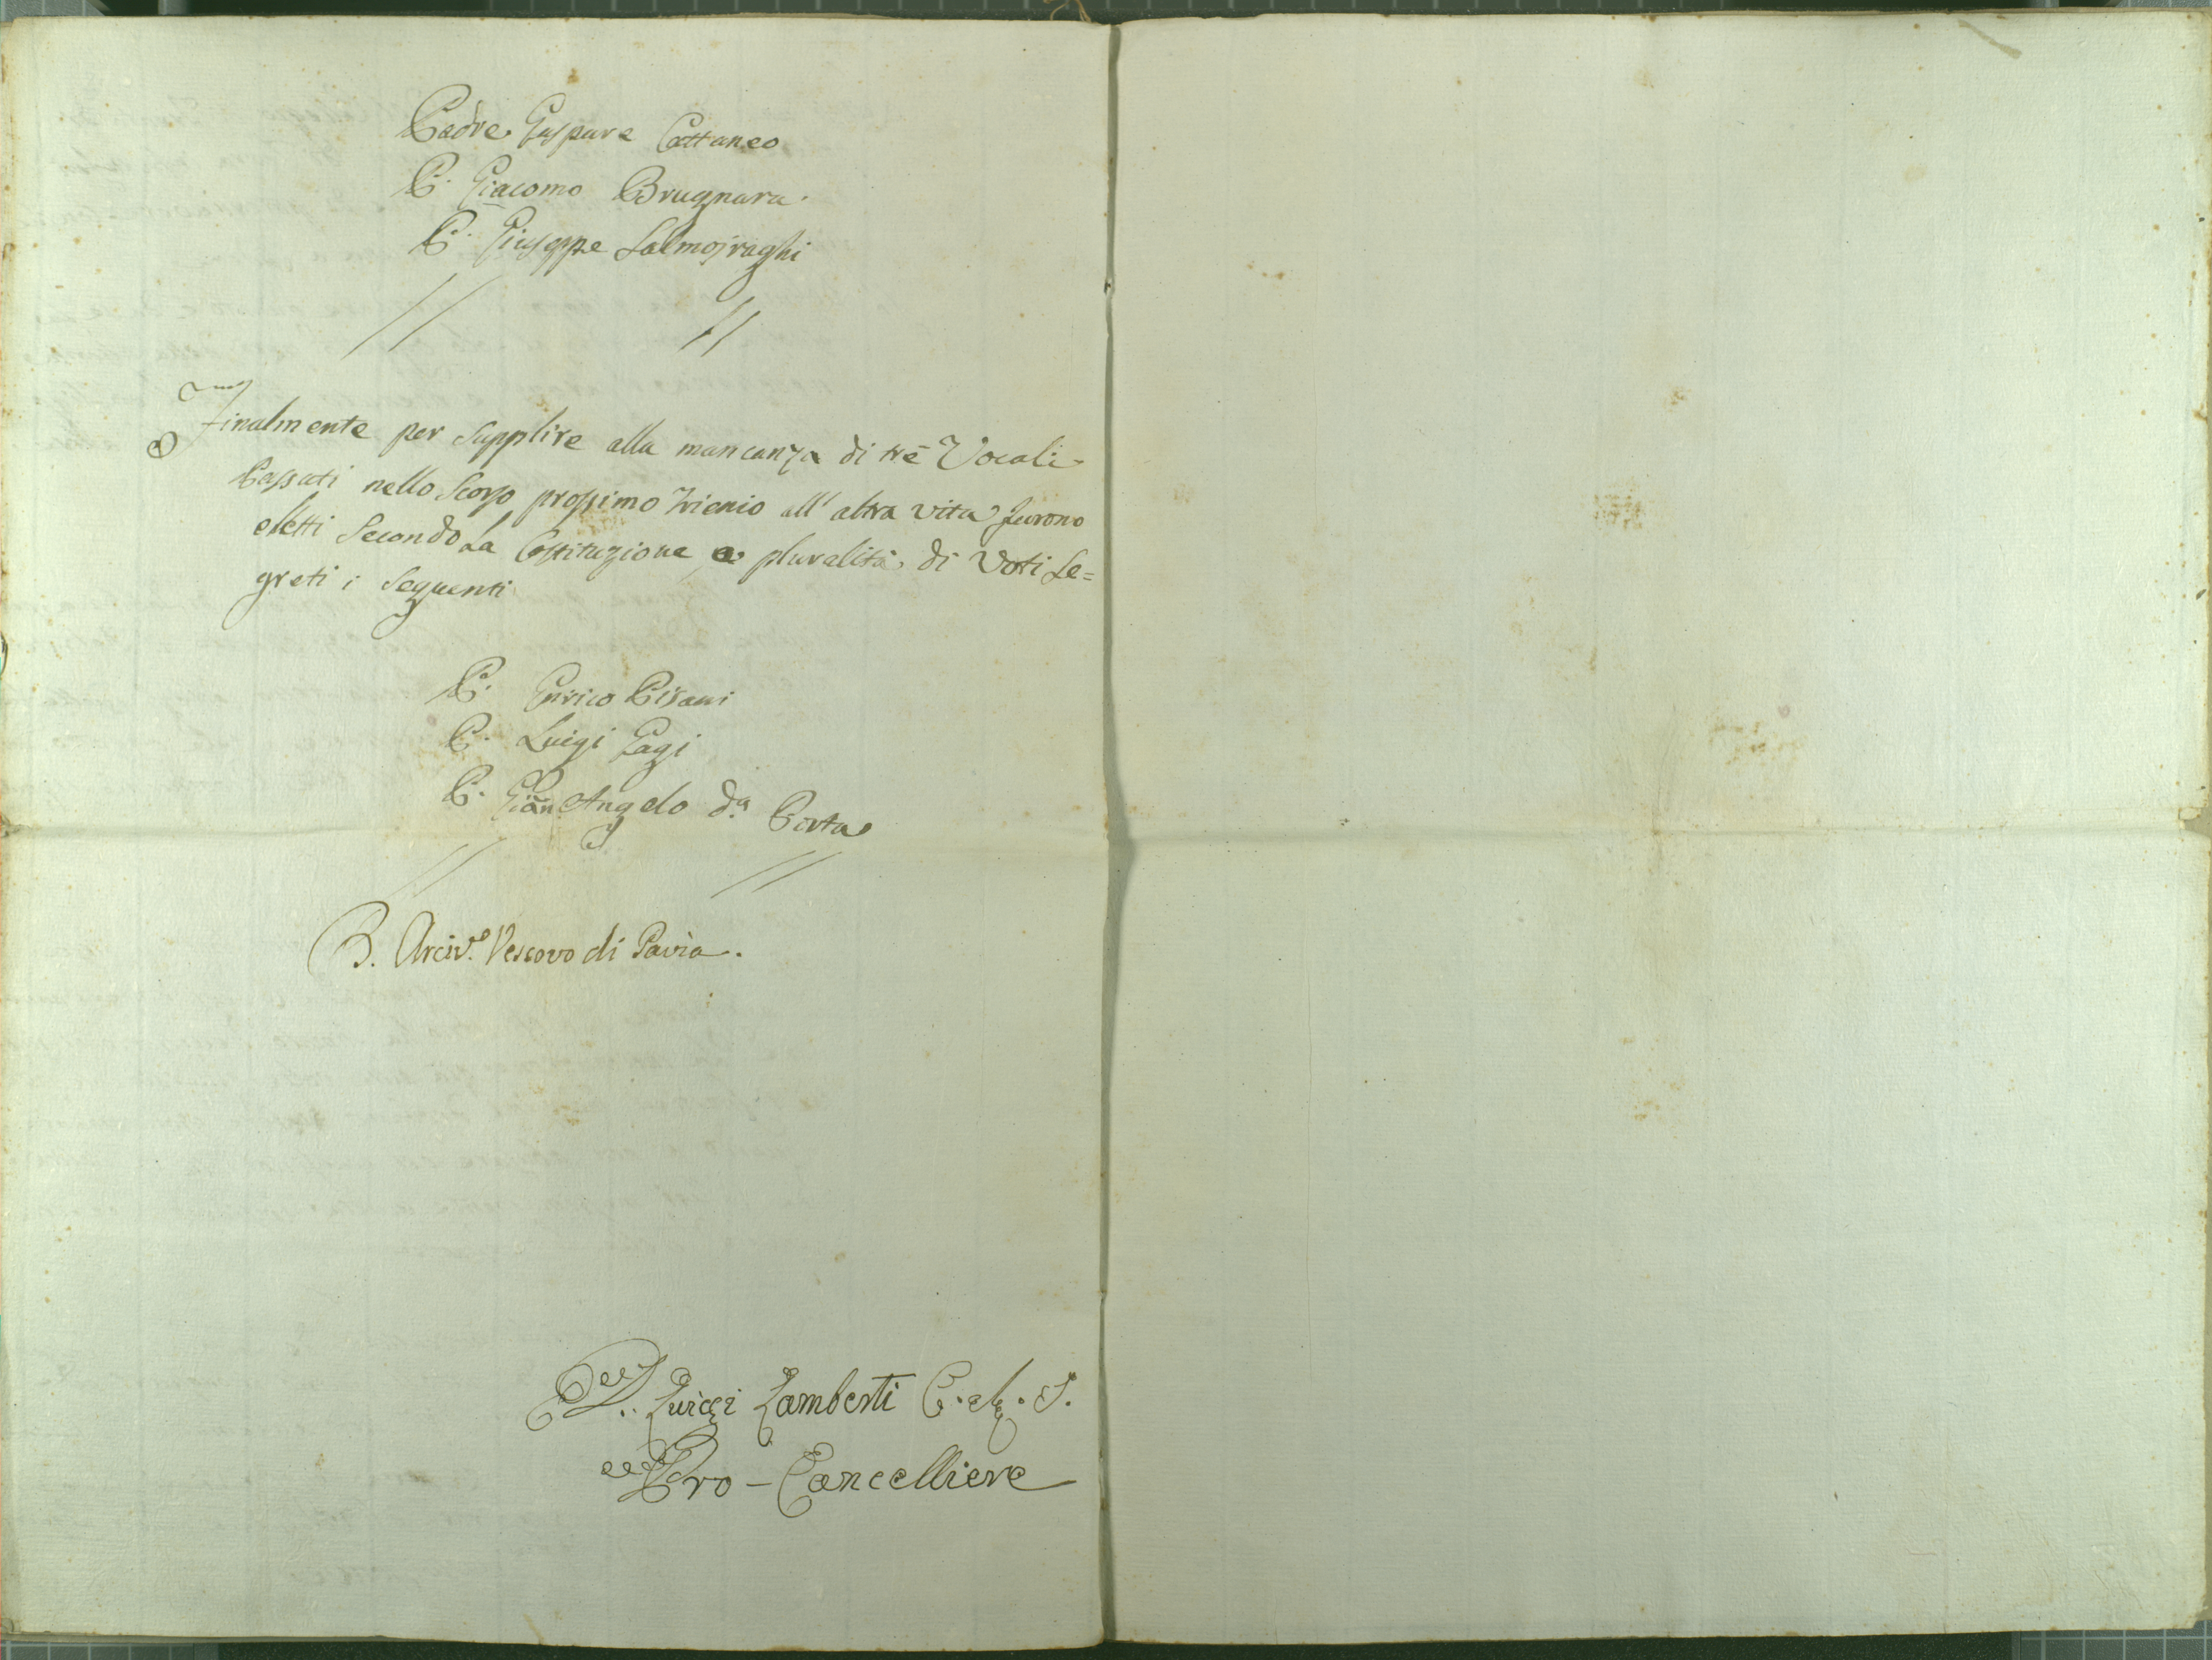 Padre Gaspare Cattaneo
P. Giacomo Brugnara.
P. Giuseppe Salmojraghi
Finalmente per supplire alla mancanza di trè Vocali
Passati nello Scorso prossimo Trienio all' altra vita furono
eletti Secondo La Costituzione a pluralità di Voti Se=
greti i Seguenti
P. Enrico Pisani
P. Luigi Gagi
P. Gian Angelo da Porta
B. Arciv.º Vescovo di Pavia.
D. Luigi Lamberti C. R. S.
Pro-Cancelliere